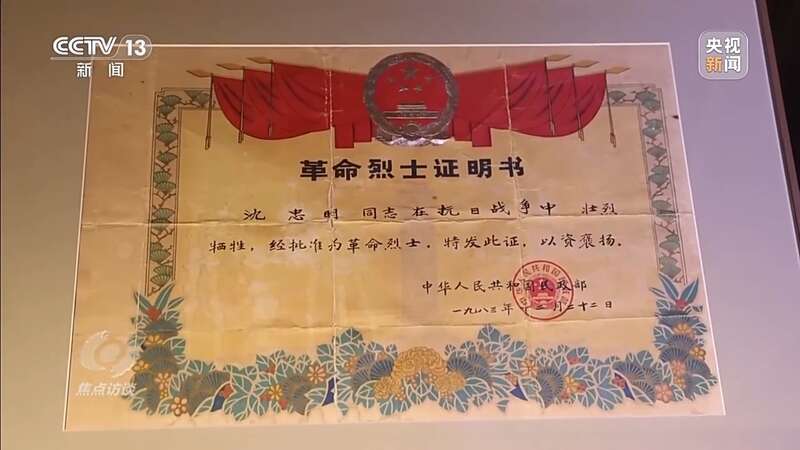 CCTV 13
新闻
央视
新闻
革命烈士证明书
沈忠明 同志在抗日战争中 壮烈
牺牲，经批准为革命烈士．特发此证，以资褒扬．
中华人民共和国民政部
一九八三年十二月二十二日
焦点访谈